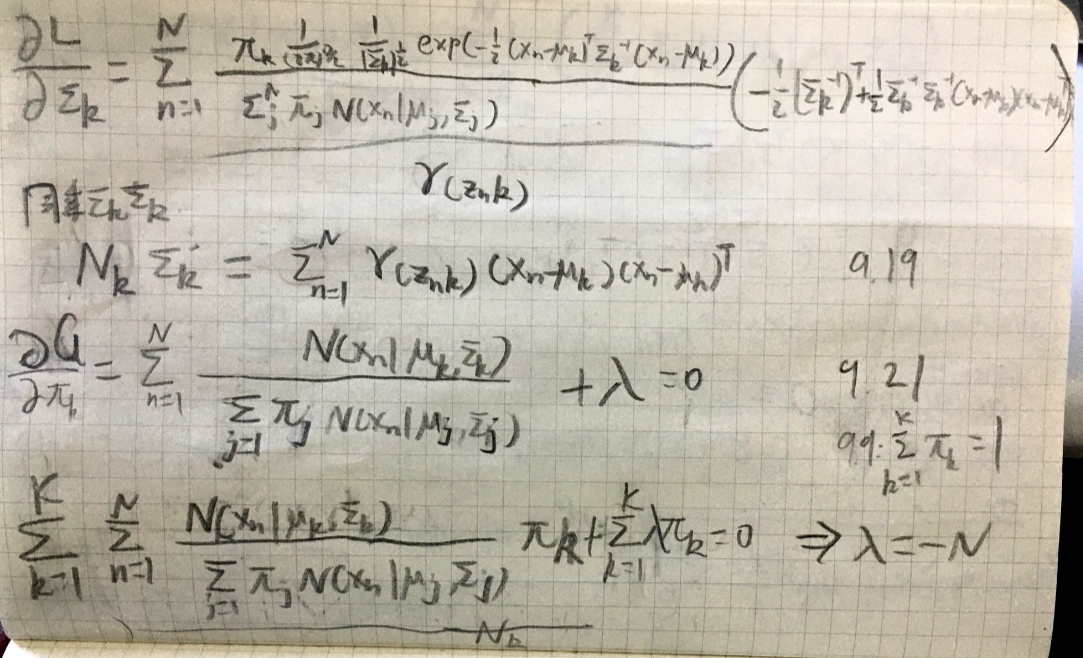 ∂L/∂Σk = Σ_{n=1}^{N} πk 1/(2π)^{D/2} 1/|Σk|^{1/2} exp(-1/2 (xn-μk)^T Σk^{-1} (xn-μk)) / Σ_j^N πj N(xn|μj, Σj) (-1/2 (Σk^{-1})^T + 1/2 Σk^{-1} Σk^{-1} (xn-μk)(xn-μk)^T)
γ(znk)
同乘 Σk Σk
Nk Σk = Σ_{n=1}^{N} γ(znk) (xn-μk)(xn-μk)^T 9.19
∂G/∂πk = Σ_{n=1}^{N} N(xn|μk, Σk) / Σ_{j=1} πj N(xn|μj, Σj) + λ = 0 9.21
9.9: Σ_{k=1}^{K} πk = 1
Σ_{k=1}^{K} Σ_{n=1}^{N} N(xn|μk, Σk) / Σ_{j=1} πj N(xn|μj, Σj) πk + Σ_{k=1}^{K} λπk = 0 ⇒ λ = -N
Nk